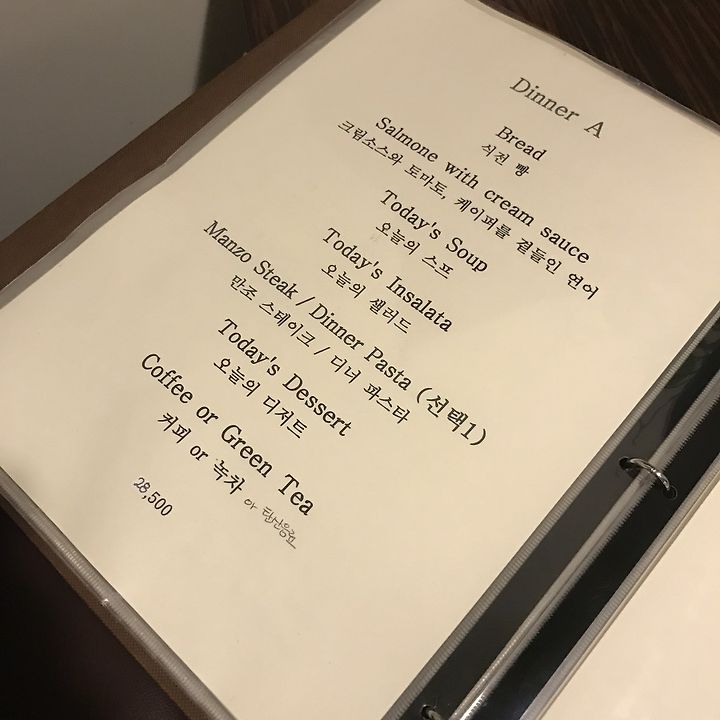 Dinner A
Bread
식전 빵
Salmone with cream sauce
크림소스와 토마토, 케이퍼를 곁들인 연어
Today's Soup
오늘의 스프
Today's Insalata
오늘의 샐러드
Manzo Steak / Dinner Pasta (선택1)
만조 스테이크 / 디너 파스타
Today's Dessert
오늘의 디저트
Coffee or Green Tea
커피 or 녹차 or 탄산음료
28,500